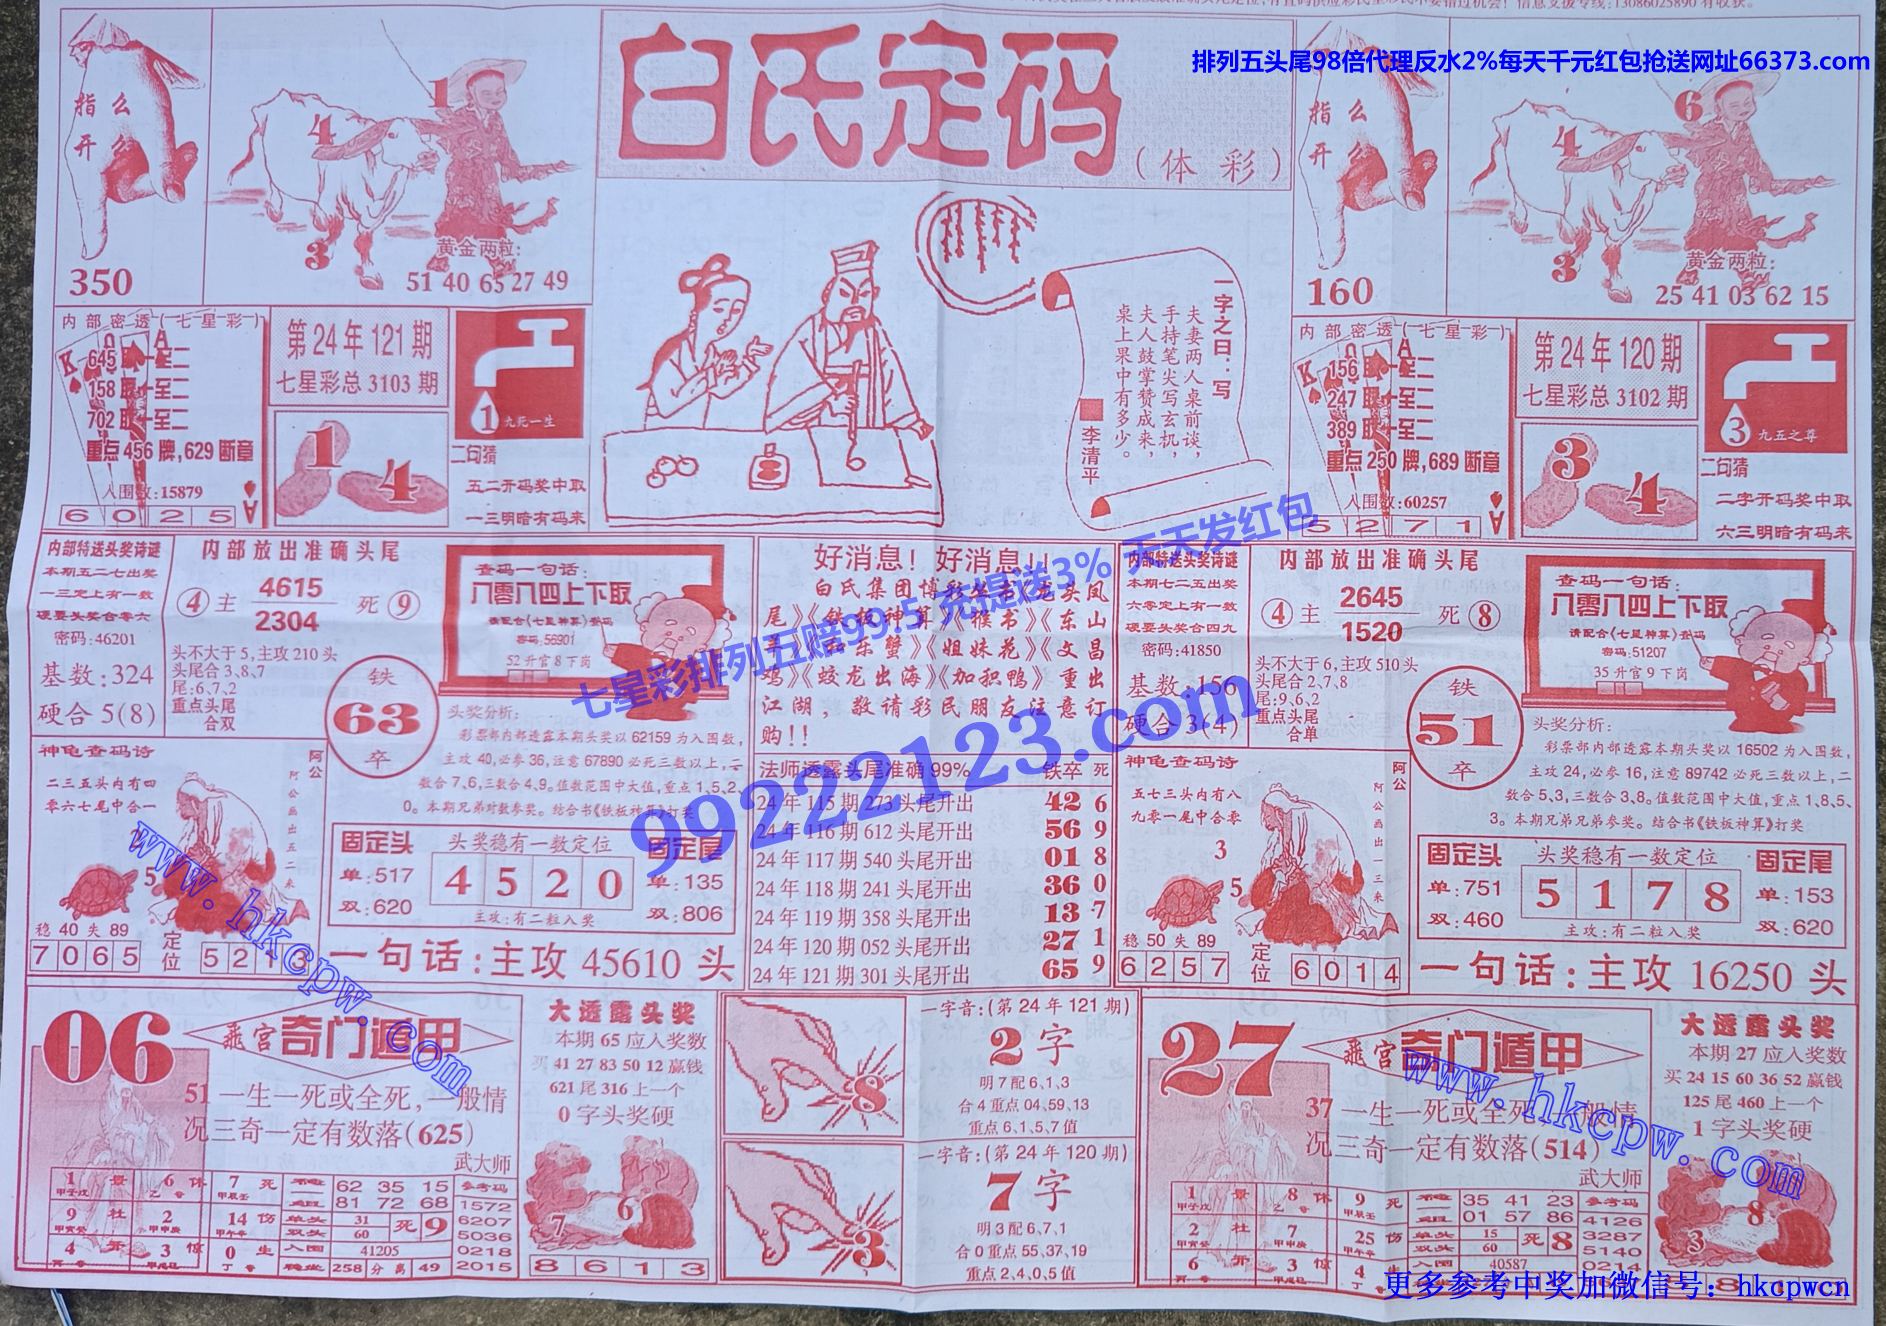 信息支援专线:13086025890 有收获。
排列五头尾98倍代理反水2%每天千元红包抢送网址66373.com
白氏定码
(体彩)
指么
开么
350
1
4
3
黄金两粒:
51 40 65 27 49
内部密透(七星彩)
645
158
702
重点456牌,629断章
入围数:15879
6 0 2 5
第24年121期
七星彩总3103期
1
九死一生
1
4
二句猜
五二开码奖中取
一三明暗有码来
一字之曰:写
夫妻两人桌前谈,
手持笔尖写玄机,
夫人鼓掌赞成来,
桌上果中有多少。
李清平
指么
开么
160
6
4
3
黄金两粒:
25 41 03 62 15
内部密透(七星彩)
156
247
389
重点250牌,689断章
入围数:60257
5 2 7 1
第24年120期
七星彩总3102期
3
九五之尊
3
4
二句猜
二字开码奖中取
六三明暗有码来
内部特送头奖诗谜
本期五二七出奖
一三定上有一数
硬要头奖合零六
密码:46201
基数:324
硬合5(8)
内部放出准确头尾
④主 4615 死⑨
2304
头不大于5,主攻210头
头尾合3、8、7
尾:6、7、2
重点头尾
合双
查码一句话:
八零八四上下取
请配合《七星神算》查码
密码:56901
52升官8下岗
铁
63
卒
头奖分析:
彩票部内部透露本期头奖以62159为入围数,
主攻40,必参36,注意67890必死三数以上,二
数合7、6,三数合4、9。值数范围中大值,重点1、5、2、
0。本期兄弟对数参奖。结合书《铁板神算》打奖
神龟查码诗
二三五头内有四
零六七尾中合一
阿公
阿公画出五二来
2
5
稳40失89
7 0 6 5
定位
5 2 1 3
固定头
单:517
双:620
头奖稳有一数定位
4 5 2 0
主攻:有二粒入奖
固定尾
单:135
双:806
一句话:主攻45610头
好消息!好消息!!
白氏集团博彩丛书《龙头凤
尾》《铁板神算》《猴书》《东山
《姐妹花》《文昌
鸡》《蛟龙出海》《加积鸭》重出
江湖,敬请彩民朋友注意订
购!!
法师透露头尾准确99% 铁卒 死
24年115期273头尾开出 42 6
24年116期612头尾开出 56 9
24年117期540头尾开出 01 8
24年118期241头尾开出 36 0
24年119期358头尾开出 13 7
24年120期052头尾开出 27 1
24年121期301头尾开出 65 9
内部特送头奖诗谜
本期七二五出奖
六零定上有一数
硬要头奖合四九
密码:41850
基数:156
硬合3(4)
内部放出准确头尾
④主 2645 死⑧
1520
头不大于6,主攻510头
头尾合2、7、8
尾:9、6、2
重点头尾
合单
查码一句话:
八零八四上下取
请配合《七星神算》查码
密码:51207
35升官9下岗
铁
51
卒
头奖分析:
彩票部内部透露本期头奖以16502为入围数,
主攻24,必参16,注意89742必死三数以上,二
数合5、3,三数合3、8。值数范围中大值,重点1、8、5、
3。本期兄弟兄弟参奖。结合书《铁板神算》打奖
神龟查码诗
五七三头内有八
九零一尾中合零
阿公
阿公画出一三来
3
5
稳50失89
6 2 5 7
定位
6 0 1 4
固定头
单:751
双:460
头奖稳有一数定位
5 1 7 8
主攻:有二粒入奖
固定尾
单:153
双:620
一句话:主攻16250头
七星彩排列五赔99.5 充提送3% 天天发红包
99222123.com
www.hkcpw.com
06
飛宫 奇门遁甲
51一生一死或全死,一般情
况三奇一定有数落(625)
武大师
1 景 6 休 7 死 62 35 15 参考码
81 72 68 1572
9 杜 2 14 伤 单头 31 死9 6207
双头 60 5036
4 开 3 惊 0 生 入围 41205 0218
258 分离 49 2015
大透露头奖
本期65应入奖数
买41 27 83 50 12赢钱
621尾316上一个
0字头奖硬
7
6
8 6 1 3
8
3
一字音:(第24年121期)
2字
明7配6、1、3
合4重点04、59、13
重点6、1、5、7值
一字音:(第24年120期)
7字
明3配6、7、1
合0重点55、37、19
重点2、4、0、5值
27
飛宫 奇门遁甲
37一生一死或全死,一般情
况三奇一定有数落(514)
武大师
1 景 8 休 9 死 35 41 23 参考码
01 57 86 4126
2 杜 7 25 伤 单头 15 死8 3287
双头 60 5140
6 开 3 惊 4 入围 40587 0214
大透露头奖
本期27应入奖数
买24 15 60 36 52赢钱
125尾460上一个
1字头奖硬
8
3
www.hkcpw.com
更多参考中奖加微信号:hkcpwcn